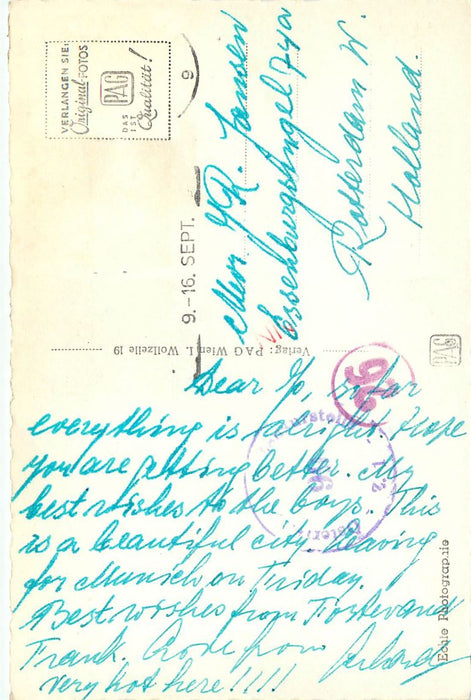 VERLANGEN SIE:
Original-FOTOS
PAG
DAS
IST
Qualität!
9
9.-16. SEPT.
R. Jansen
Essenburgsingel 74a
Rotterdam W.
Holland.
Verlag: PAG Wien I. Wollzeile 19
PAG
96
Dear Jo, so far
everything is alright. Hope
you are getting better. My
best wishes to the boys. This
is a beautiful city. Leaving
for Munich on Friday.
Best wishes from
Frank. from
very hot here!!!!
Echte Photographie